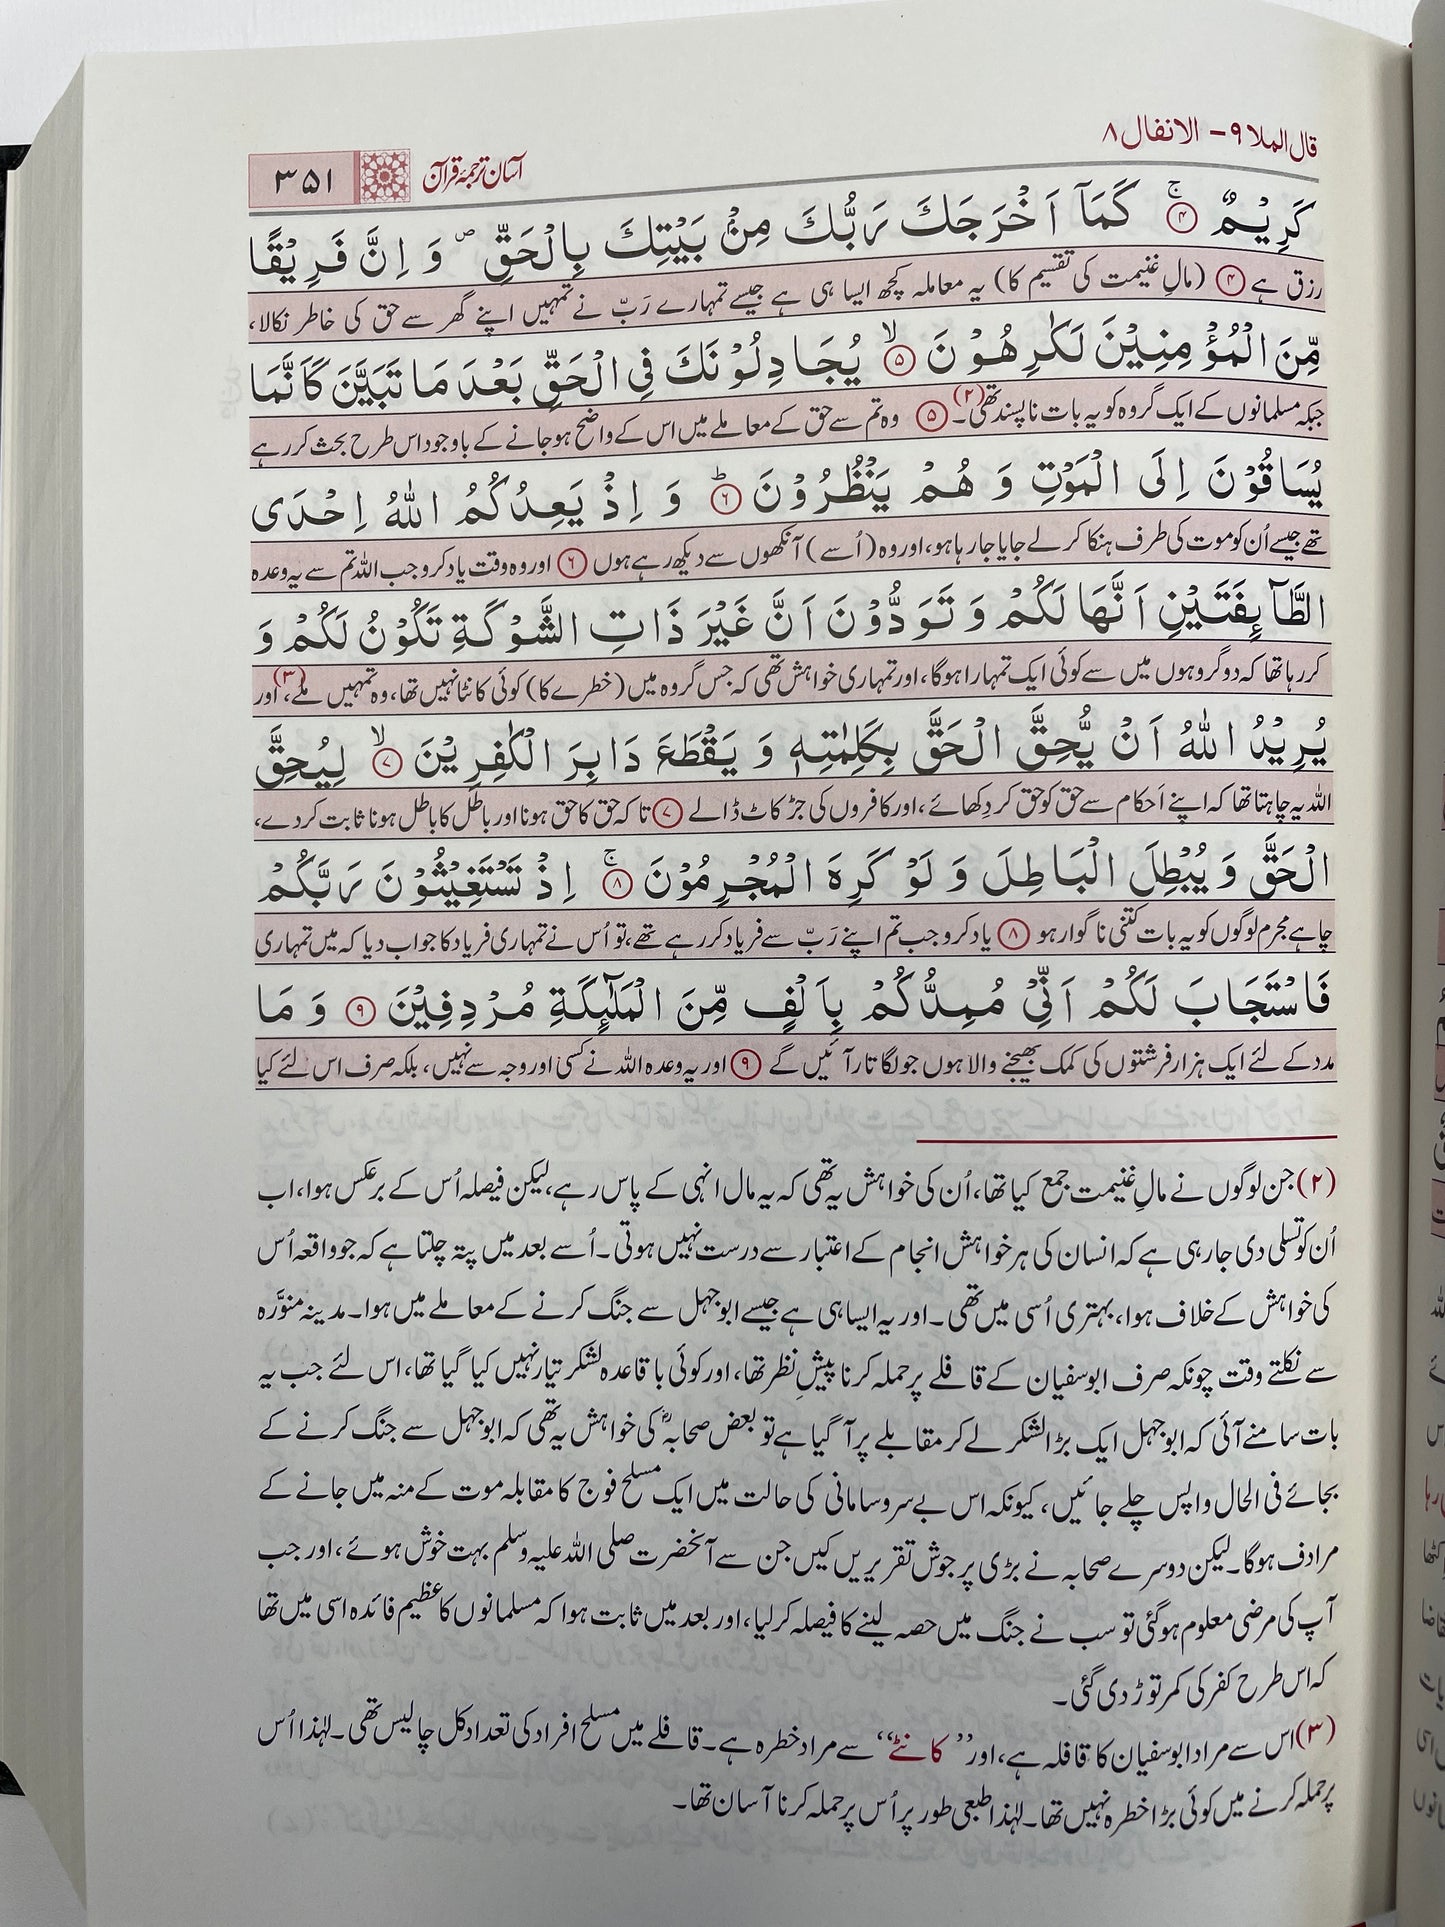 قال الملا ۹ – الانفال ۸
آسان ترجمۂ قرآن
۳۵۱
كَرِيْمٌ ۚ۴ كَمَاۤ اَخْرَجَكَ رَبُّكَ مِنْۢ بَيْتِكَ بِالْحَقِّ ۪ وَ اِنَّ فَرِيْقًا
رزق ہے ۴ (مالِ غنیمت کی تقسیم کا) یہ معاملہ کچھ ایسا ہی ہے جیسے تمہارے رَبّ نے تمہیں اپنے گھر سے حق کی خاطر نکالا،
مِّنَ الْمُؤْمِنِيْنَ لَكٰرِهُوْنَ ۙ۵ يُجَادِلُوْنَكَ فِي الْحَقِّ بَعْدَ مَا تَبَيَّنَ كَاَنَّمَا
جبکہ مسلمانوں کے ایک گروہ کو یہ بات ناپسند تھی۔(۲) ۵ وہ تم سے حق کے معاملے میں اس کے واضح ہوجانے کے باوجود اس طرح بحث کر رہے
يُسَاقُوْنَ اِلَى الْمَوْتِ وَ هُمْ يَنْظُرُوْنَ ؕ۶ وَ اِذْ يَعِدُكُمُ اللّٰهُ اِحْدَى
تھے جیسے اُن کو موت کی طرف ہنکا کر لے جایا جا رہا ہو، اور وہ (اُسے) آنکھوں سے دیکھ رہے ہوں ۶ اور وہ وقت یاد کرو جب اللہ تم سے یہ وعدہ
الطَّآىِٕفَتَيْنِ اَنَّهَا لَكُمْ وَ تَوَدُّوْنَ اَنَّ غَيْرَ ذَاتِ الشَّوْكَةِ تَكُوْنُ لَكُمْ وَ
کر رہا تھا کہ دو گروہوں میں سے کوئی ایک تمہارا ہوگا، اور تمہاری خواہش تھی کہ جس گروہ میں (خطرے کا) کوئی کانٹا نہیں تھا، وہ تمہیں ملے،(۳) اور
يُرِيْدُ اللّٰهُ اَنْ يُّحِقَّ الْحَقَّ بِكَلِمٰتِهٖ وَ يَقْطَعَ دَابِرَ الْكٰفِرِيْنَ ۙ۷ لِيُحِقَّ
اللہ یہ چاہتا تھا کہ اپنے اَحکام سے حق کو حق کر دِکھائے، اور کافروں کی جڑ کاٹ ڈالے ۷ تاکہ حق کا حق ہونا اور باطل کا باطل ہونا ثابت کردے،
الْحَقَّ وَ يُبْطِلَ الْبَاطِلَ وَ لَوْ كَرِهَ الْمُجْرِمُوْنَ ۚ۸ اِذْ تَسْتَغِيْثُوْنَ رَبَّكُمْ
چاہے مجرم لوگوں کو یہ بات کتنی ناگوار ہو ۸ یاد کرو جب تم اپنے رَبّ سے فریاد کر رہے تھے، تو اُس نے تمہاری فریاد کا جواب دیا کہ میں تمہاری
فَاسْتَجَابَ لَكُمْ اَنِّيْ مُمِدُّكُمْ بِاَلْفٍ مِّنَ الْمَلٰٓىِٕكَةِ مُرْدِفِيْنَ ۹ وَ مَا
مدد کے لئے ایک ہزار فرشتوں کی کمک بھیجنے والا ہوں جو لگاتار آئیں گے ۹ اور یہ وعدہ اللہ نے کسی اور وجہ سے نہیں، بلکہ صرف اس لئے کیا
(۲) جن لوگوں نے مالِ غنیمت جمع کیا تھا، اُن کی خواہش یہ تھی کہ یہ مال انہی کے پاس رہے، لیکن فیصلہ اُس کے برعکس ہوا، اب
اُن کو تسلی دی جا رہی ہے کہ انسان کی ہر خواہش انجام کے اعتبار سے درست نہیں ہوتی۔ اُسے بعد میں پتہ چلتا ہے کہ جو واقعہ اُس
کی خواہش کے خلاف ہوا، بہتری اُسی میں تھی۔ اور یہ ایسا ہی ہے جیسے ابوجہل سے جنگ کرنے کے معاملے میں ہوا۔ مدینہ منوَّرہ
سے نکلتے وقت چونکہ صرف ابوسفیان کے قافلے پر حملہ کرنا پیشِ نظر تھا، اور کوئی باقاعدہ لشکر تیار نہیں کیا گیا تھا، اس لئے جب یہ
بات سامنے آئی کہ ابوجہل ایک بڑا لشکر لے کر مقابلے پر آ گیا ہے تو بعض صحابہؓ کی خواہش یہ تھی کہ ابوجہل سے جنگ کرنے کے
بجائے فی الحال واپس چلے جائیں، کیونکہ اس بے سروسامانی کی حالت میں ایک مسلح فوج کا مقابلہ موت کے منہ میں جانے کے
مرادف ہوگا۔ لیکن دوسرے صحابہ نے بڑی پر جوش تقریریں کیں جن سے آنحضرت صلی اللہ علیہ وسلم بہت خوش ہوئے، اور جب
آپ کی مرضی معلوم ہوگئی تو سب نے جنگ میں حصہ لینے کا فیصلہ کرلیا، اور بعد میں ثابت ہوا کہ مسلمانوں کا عظیم فائدہ اسی میں تھا
کہ اس طرح کفر کی کمر توڑ دی گئی۔
(۳) اس سے مراد ابوسفیان کا قافلہ ہے، اور ”کانٹے“ سے مراد خطرہ ہے۔ قافلے میں مسلح افراد کی تعداد کل چالیس تھی۔ لہٰذا اُس
پر حملہ کرنے میں کوئی بڑا خطرہ نہیں تھا۔ لہٰذا طبعی طور پر اُس پر حملہ کرنا آسان تھا۔